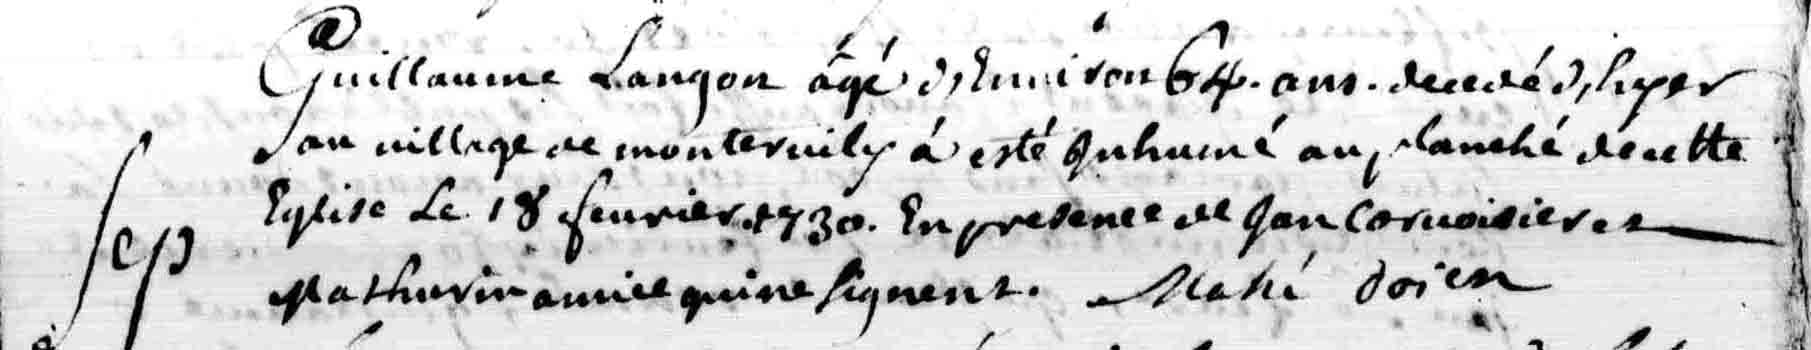 Guillaume Langon âgé d'Environ 64. ans. decedé d'hyer
au village de monteruily á esté Inhumé au planché de cette
Sep
Eglise Le 18 feuvrier. 1730. En presence de Jan Coruoisier et
Mathurin amice qui ne signent. Mahé doien